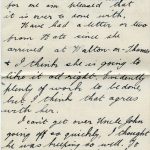 for me am pleased that
it is over to some with,
Have had a letter or two
from Bote since she
arrived at Walton-on-Thames
& I think she is going to
like it all right. Evidently
plenty of work to be done
but I think that agrees
with her.
I can't get over Uncle John
going off so quickly, I thought
he was keeping so well. To